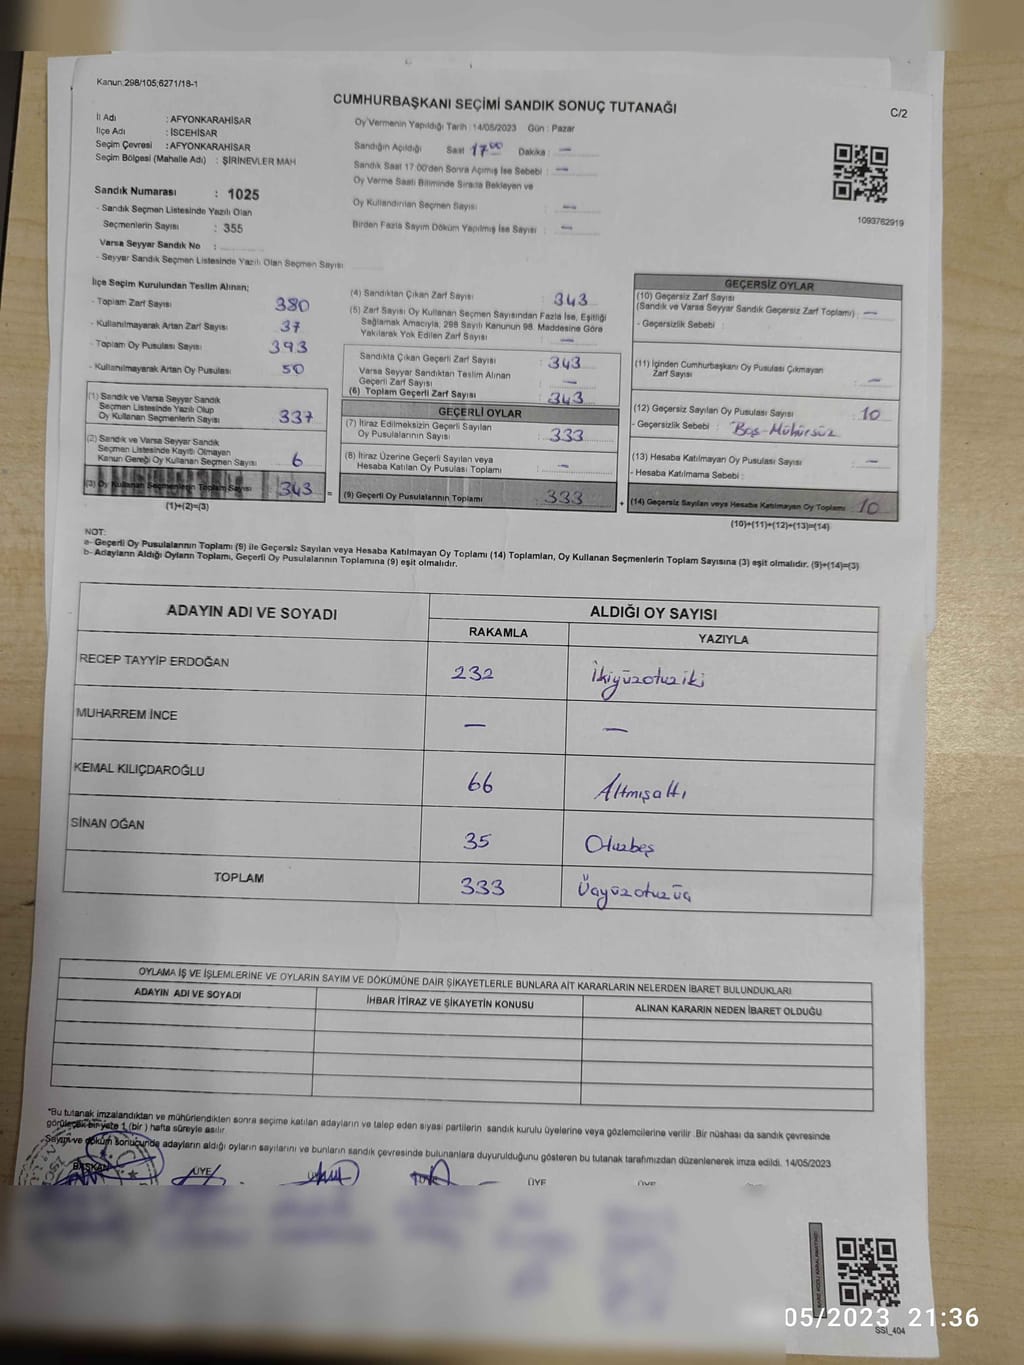 Kanun:298/105;6271/18-1
CUMHURBAŞKANI SEÇİMİ SANDIK SONUÇ TUTANAĞI
C/2
İl Adı : AFYONKARAHİSAR
İlçe Adı : İSCEHİSAR
Seçim Çevresi : AFYONKARAHİSAR
Seçim Bölgesi (Mahalle Adı) : ŞİRİNEVLER MAH
Sandık Numarası : 1025
- Sandık Seçmen Listesinde Yazılı Olan
Seçmenlerin Sayısı : 355
Varsa Seyyar Sandık No :
- Seyyar Sandık Seçmen Listesinde Yazılı Olan Seçmen Sayısı:
Oy Vermenin Yapıldığı Tarih : 14/05/2023 Gün : Pazar
Sandığın Açıldığı Saat 17 00 Dakika : —
Sandık Saat 17:00'den Sonra Açımış İse Sebebi : —
Oy Verme Saati Bitiminde Sırada Bekleyen ve
Oy Kullandırılan Seçmen Sayısı : —
Birden Fazla Sayım Döküm Yapılmış İse Sayısı : —
1093762919
İlçe Seçim Kurulundan Teslim Alınan;
- Toplam Zarf Sayısı 380
- Kullanılmayarak Artan Zarf Sayısı 37
- Toplam Oy Pusulası Sayısı 393
- Kullanılmayarak Artan Oy Pusulası 50
(1) Sandık ve Varsa Seyyar Sandık
Seçmen Listesinde Yazılı Olup
Oy Kullanan Seçmenlerin Sayısı 337
(2) Sandık ve Varsa Seyyar Sandık
Seçmen Listesinde Kayıtlı Olmayan
Kanun Gereği Oy Kullanan Seçmen Sayısı 6
(3) Oy Kullanan Seçmenlerin Toplam Sayısı 343 =
(1)+(2)=(3)
(4) Sandıktan Çıkan Zarf Sayısı : 343
(5) Zarf Sayısı Oy Kullanan Seçmen Sayısından Fazla İse, Eşitliği
Sağlamak Amacıyla, 298 Sayılı Kanunun 98. Maddesine Göre
Yakılarak Yok Edilen Zarf Sayısı : —
Sandıkta Çıkan Geçerli Zarf Sayısı : 343
Varsa Seyyar Sandıktan Teslim Alınan
Geçerli Zarf Sayısı : —
(6) Toplam Geçerli Zarf Sayısı : 343
GEÇERLİ OYLAR
(7) İtiraz Edilmeksizin Geçerli Sayılan
Oy Pusulalarının Sayısı : 333
(8) İtiraz Üzerine Geçerli Sayılan veya
Hesaba Katılan Oy Pusulası Toplamı : —
(9) Geçerli Oy Pusulalarının Toplamı 333 +
GEÇERSİZ OYLAR
(10) Geçersiz Zarf Sayısı
(Sandık ve Varsa Seyyar Sandık Geçersiz Zarf Toplamı) : —
- Geçersizlik Sebebi :
(11) İçinden Cumhurbaşkanı Oy Pusulası Çıkmayan
Zarf Sayısı : —
(12) Geçersiz Sayılan Oy Pusulası Sayısı : 10
- Geçersizlik Sebebi : Boş-Mühürsüz
(13) Hesaba Katılmayan Oy Pusulası Sayısı : —
- Hesaba Katılmama Sebebi :
(14) Geçersiz Sayılan veya Hesaba Katılmayan Oy Toplamı : 10
(10)+(11)+(12)+(13)=(14)
NOT:
a- Geçerli Oy Pusulalarının Toplamı (9) ile Geçersiz Sayılan veya Hesaba Katılmayan Oy Toplamı (14) Toplamları, Oy Kullanan Seçmenlerin Toplam Sayısına (3) eşit olmalıdır. (9)+(14)=(3)
b- Adayların Aldığı Oyların Toplamı, Geçerli Oy Pusulalarının Toplamına (9) eşit olmalıdır.
ADAYIN ADI VE SOYADI ALDIĞI OY SAYISI
RAKAMLA YAZIYLA
RECEP TAYYİP ERDOĞAN 232 İkiyüzotuziki
MUHARREM İNCE — —
KEMAL KILIÇDAROĞLU 66 Altmışaltı
SİNAN OĞAN 35 Otuzbeş
TOPLAM 333 Üçyüzotuzüç
OYLAMA İŞ VE İŞLEMLERİNE VE OYLARIN SAYIM VE DÖKÜMÜNE DAİR ŞİKAYETLERLE BUNLARA AİT KARARLARIN NELERDEN İBARET BULUNDUKLARI
ADAYIN ADI VE SOYADI İHBAR İTİRAZ VE ŞİKAYETİN KONUSU ALINAN KARARIN NEDEN İBARET OLDUĞU
"Bu tutanak imzalandıktan ve mühürlendikten sonra seçime katılan adayların ve talep eden siyasi partilerin sandık kurulu üyelerine veya gözlemcilerine verilir. Bir nüshası da sandık çevresinde
görülecek bir yere 1 (bir ) hafta süreyle asılır.
Sayım ve döküm sonucunda adayların aldığı oyların sayılarını ve bunların sandık çevresinde bulunanlara duyurulduğunu gösteren bu tutanak tarafımızdan düzenlenerek imza edildi. 14/05/2023
BAŞKAN ÜYE ÜYE ÜYE
05/2023 21:36
SSİ_404